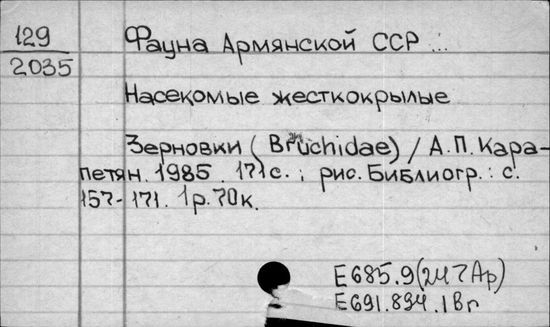 129
2035
Фауна Армянской ССР ...
Насекомые жесткокрылые
Зерновки (Bruchidae) / А.П. Кара-
петян. 1985. 171 с. ; рис. Библиогр.: с.
157-171. 1р. 70к.
E685.9(247Ар)
E691.894.1Вг